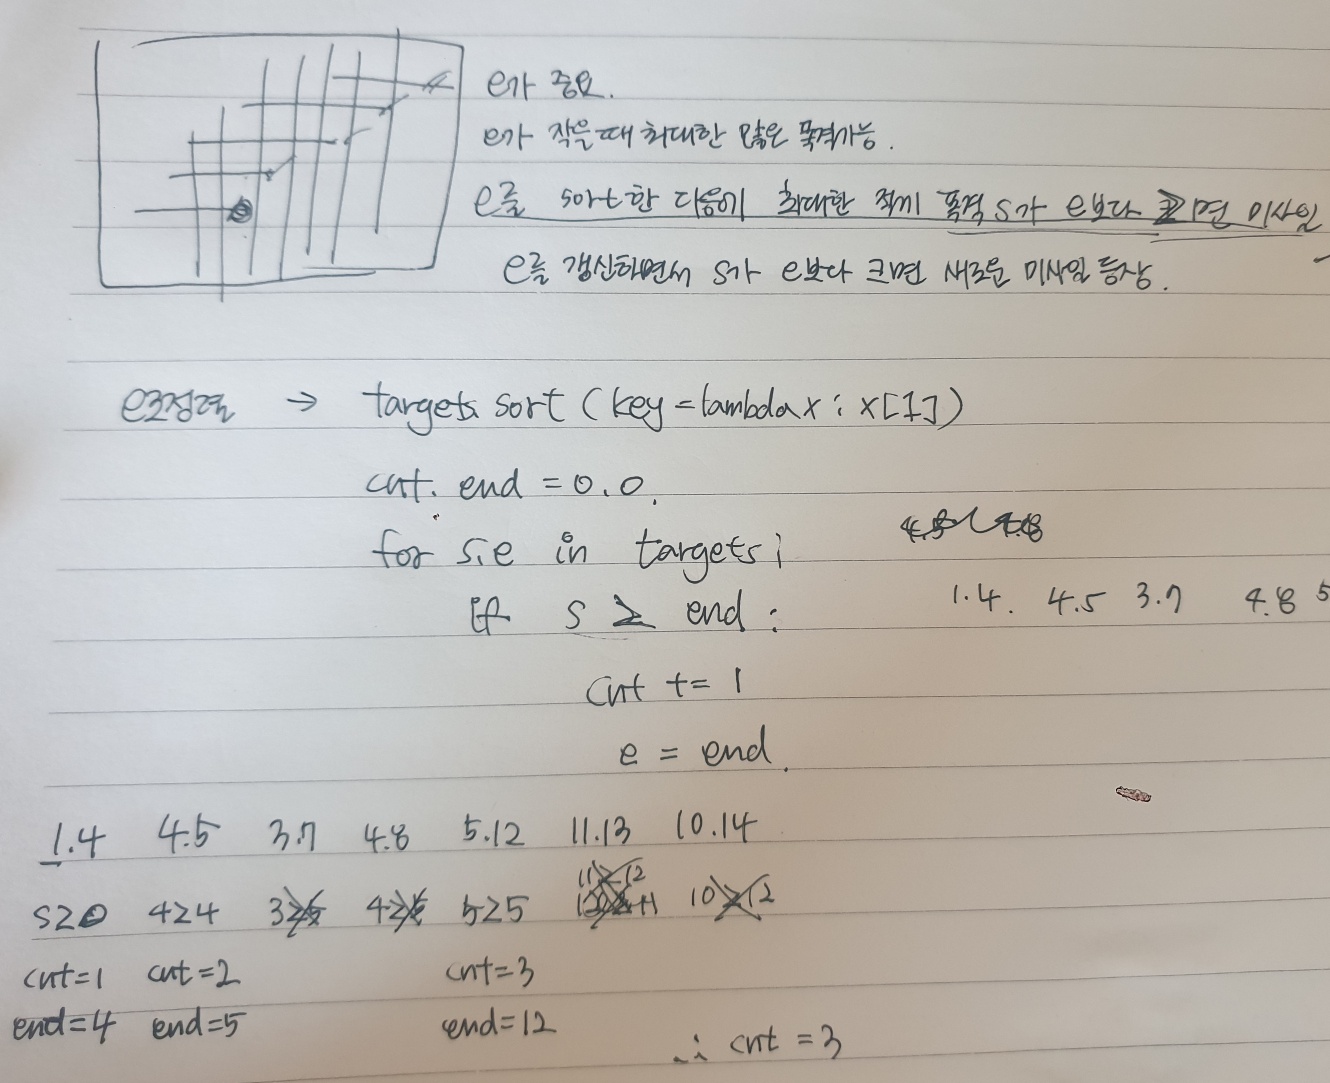 e가 중요.
e가 작을때 최대한 많은 폭격가능.
e를 sort한 다음에 최대한 적게 폭격 s가 e보다 크면 미사일
e를 갱신하면서 s가 e보다 크면 새로운 미사일 등장.
e로정렬 → targets. sort (key = lambda x : x[1])
cnt. end = 0.0.
for s,e in targets:
if s ≥ end :
1.4. 4.5 3.7 4.8 5
cnt += 1
e = end.
1.4 4.5 3.7 4.8 5.12 11.13 10.14
11≥12
s≥0 4≥4 3≥5 4≥5 5≥5 10≥12
cnt=1 cnt=2 cnt=3
end=4 end=5 end=12
∴ cnt = 3